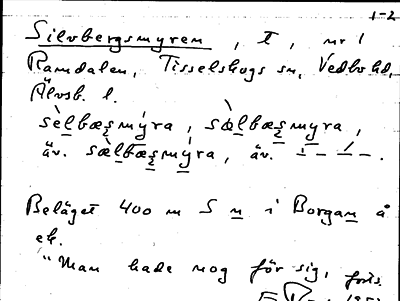 1-2
Silvbergsmyren, T, nr 1
Ramdalen, Tisselskogs sn, Vedbo hd,
Älvsb. l.
sèlbæsmýra, sæ̀lbæsmýra,
äv. sælbæsmýra, äv.
Beläget 400 m S n i Borgan å
ek.
"Man hade nog för sig,